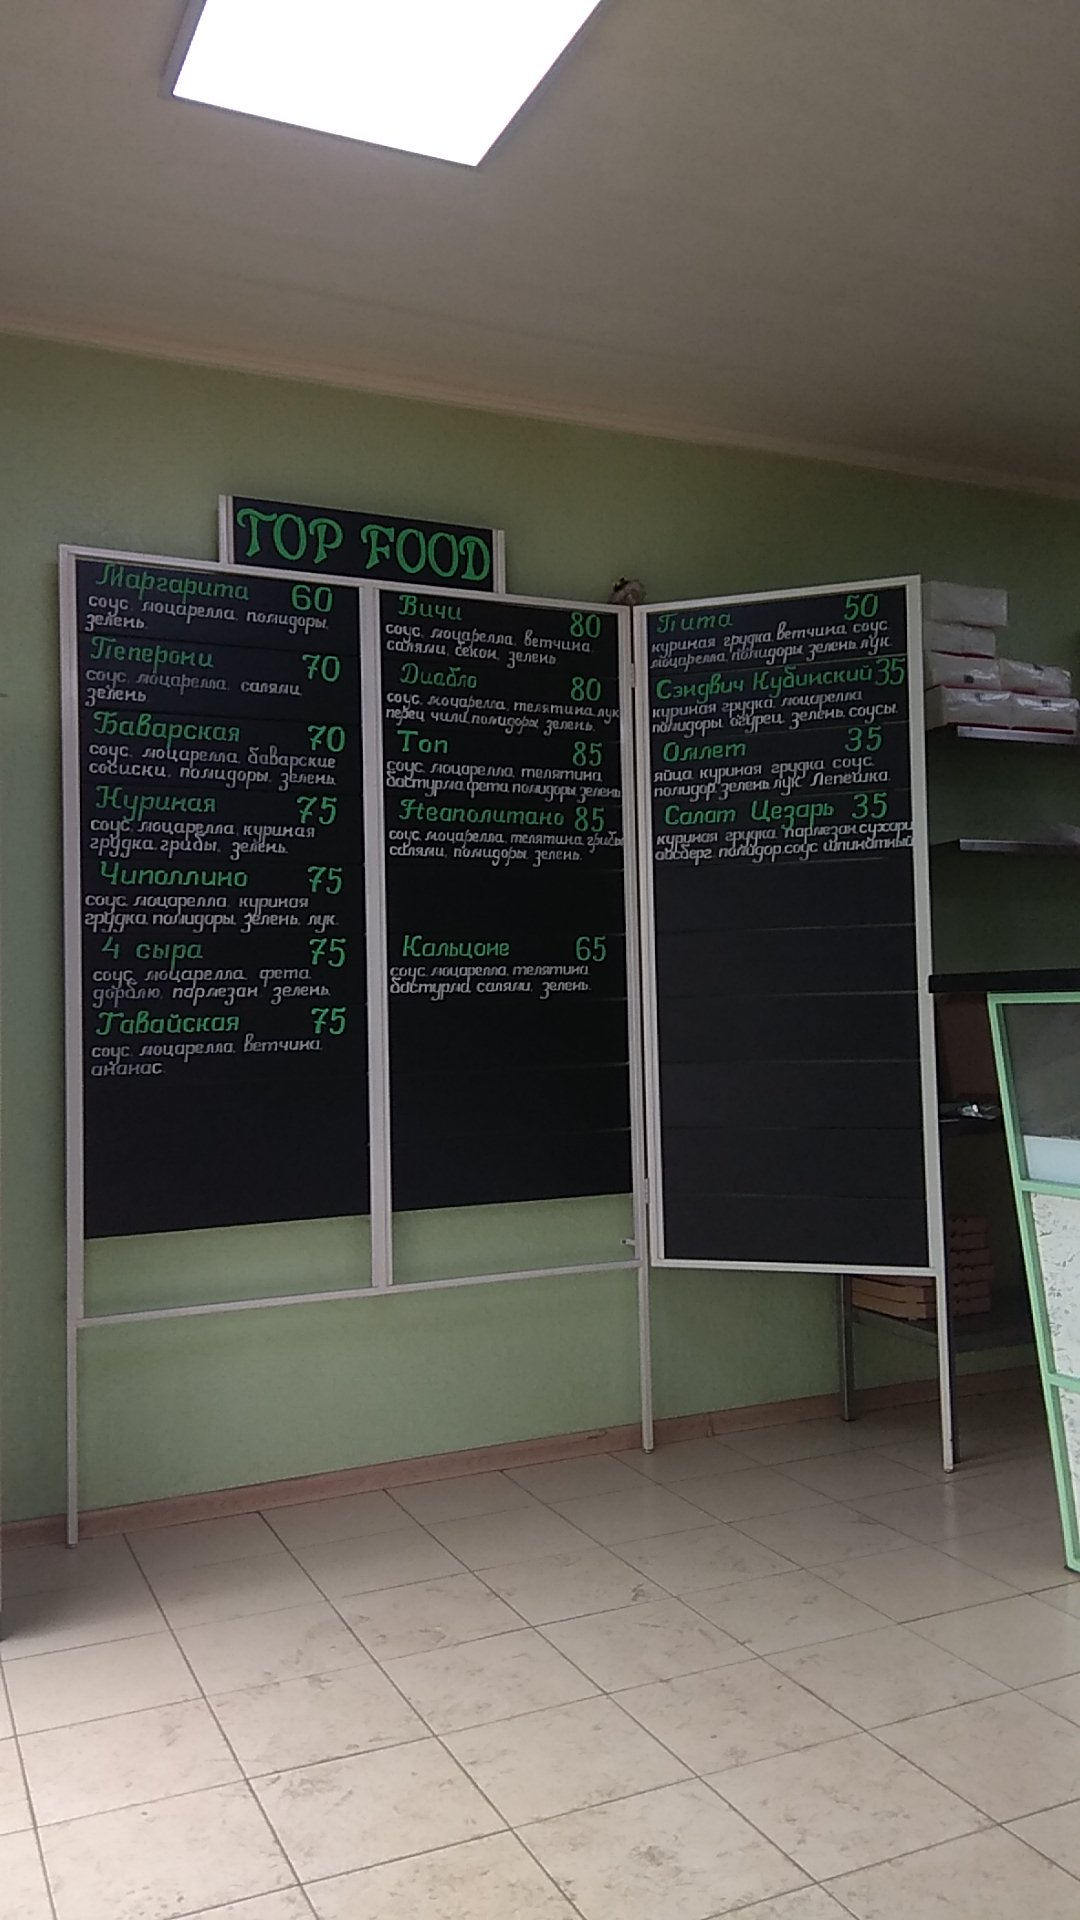 TOP FOOD
Маргарита 60
соус, моцарелла, помидоры,
зелень.
Пеперони 70
соус, моцарелла, салями,
зелень
Баварская 70
соус, моцарелла, баварские
сосиски, помидоры, зелень.
Куриная 75
соус, моцарелла, куриная
грудка, грибы, зелень.
Чиполлино 75
соус, моцарелла, куриная
грудка, помидоры, зелень, лук.
4 сыра 75
соус, моцарелла, фета,
дорблю, пармезан, зелень.
Гавайская 75
соус, моцарелла, ветчина,
ананас.
Вичи 80
соус, моцарелла, ветчина,
салями, бекон, зелень
Диабло 80
соус, моцарелла, телятина, лук
перец чили, помидоры, зелень.
Топ 85
соус, моцарелла, телятина,
бастурма, фета, помидоры, зелень
Неаполитано 85
соус, моцарелла, телятина, грибы
салями, помидоры, зелень.
Кальцоне 65
соус, моцарелла, телятина,
бастурма, салями, зелень.
Пита 50
куриная грудка, ветчина, соус
моцарелла, помидоры, зелень, лук.
Сэндвич Кубинский 35
куриная грудка, моцарелла
помидоры, огурец, зелень, соусы.
Омлет 35
яйца, куриная грудка, соус,
помидор, зелень, лук. Лепешка.
Салат Цезарь 35
куриная грудка, пармезан, сухари
айсберг, помидор, соус шпинатный